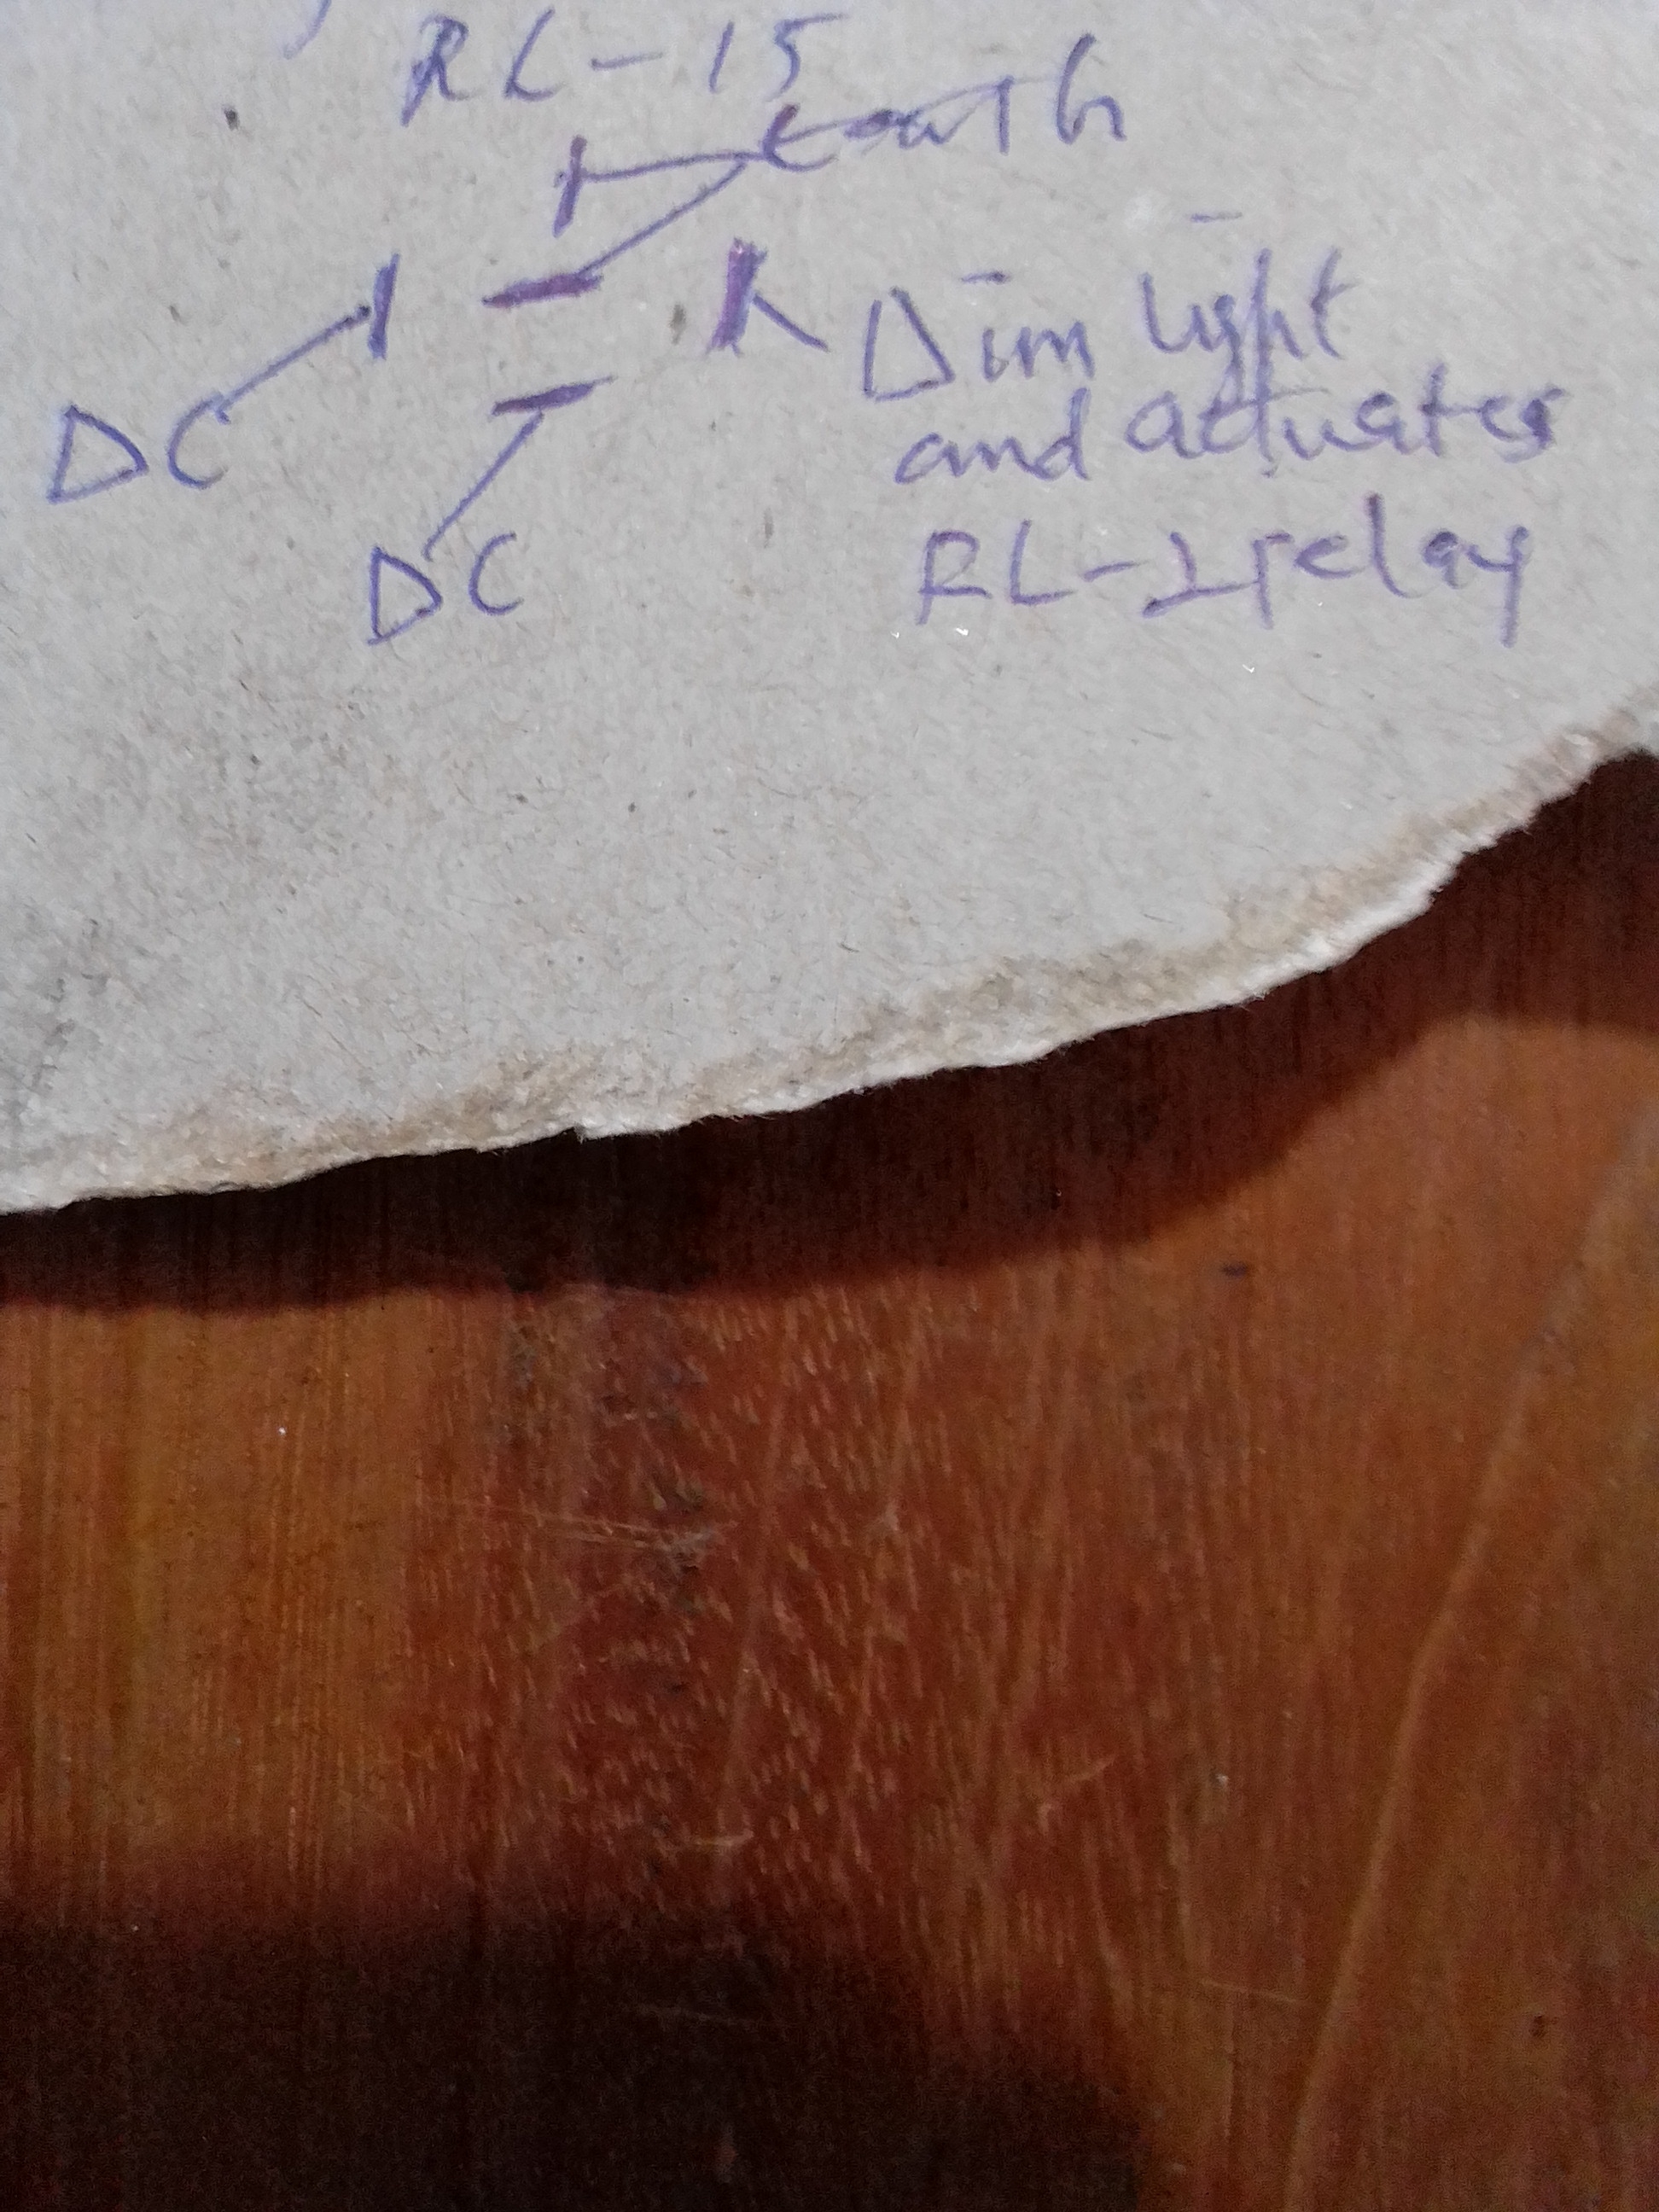 RL-15
Earth
DC
DC
Dim light
and actuates
RL-2 relay